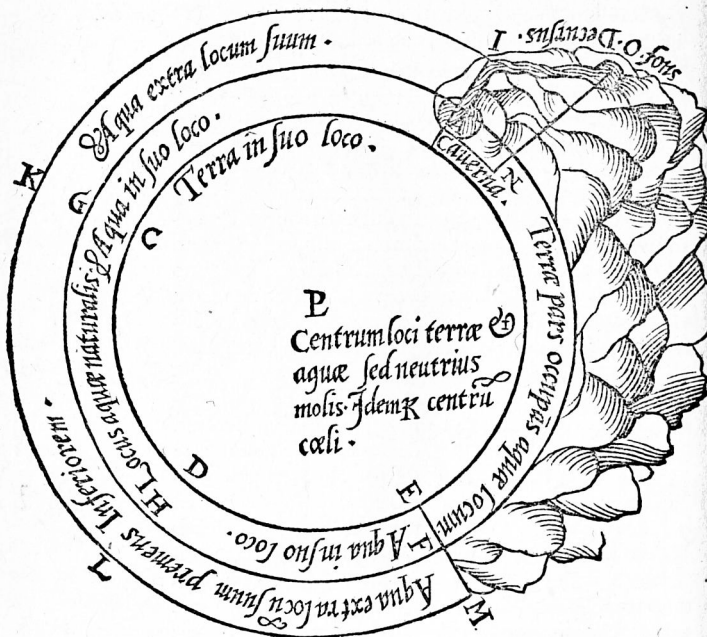 I. Decursus. O. fons
& Aqua extra locum suum.
K
G & Aqua in suo loco.
C Terra in suo loco.
Caverna.
N
Terræ pars occupãs aquæ locum
P
Centrum loci terræ &
aquæ sed neutrius
molis. Idemꝗ centrũ
cœli.
D
H Locus aquæ naturalis.
E
F Aqua in suo loco.
L
Aqua extra locũ suum premens Inferiorem.
M.